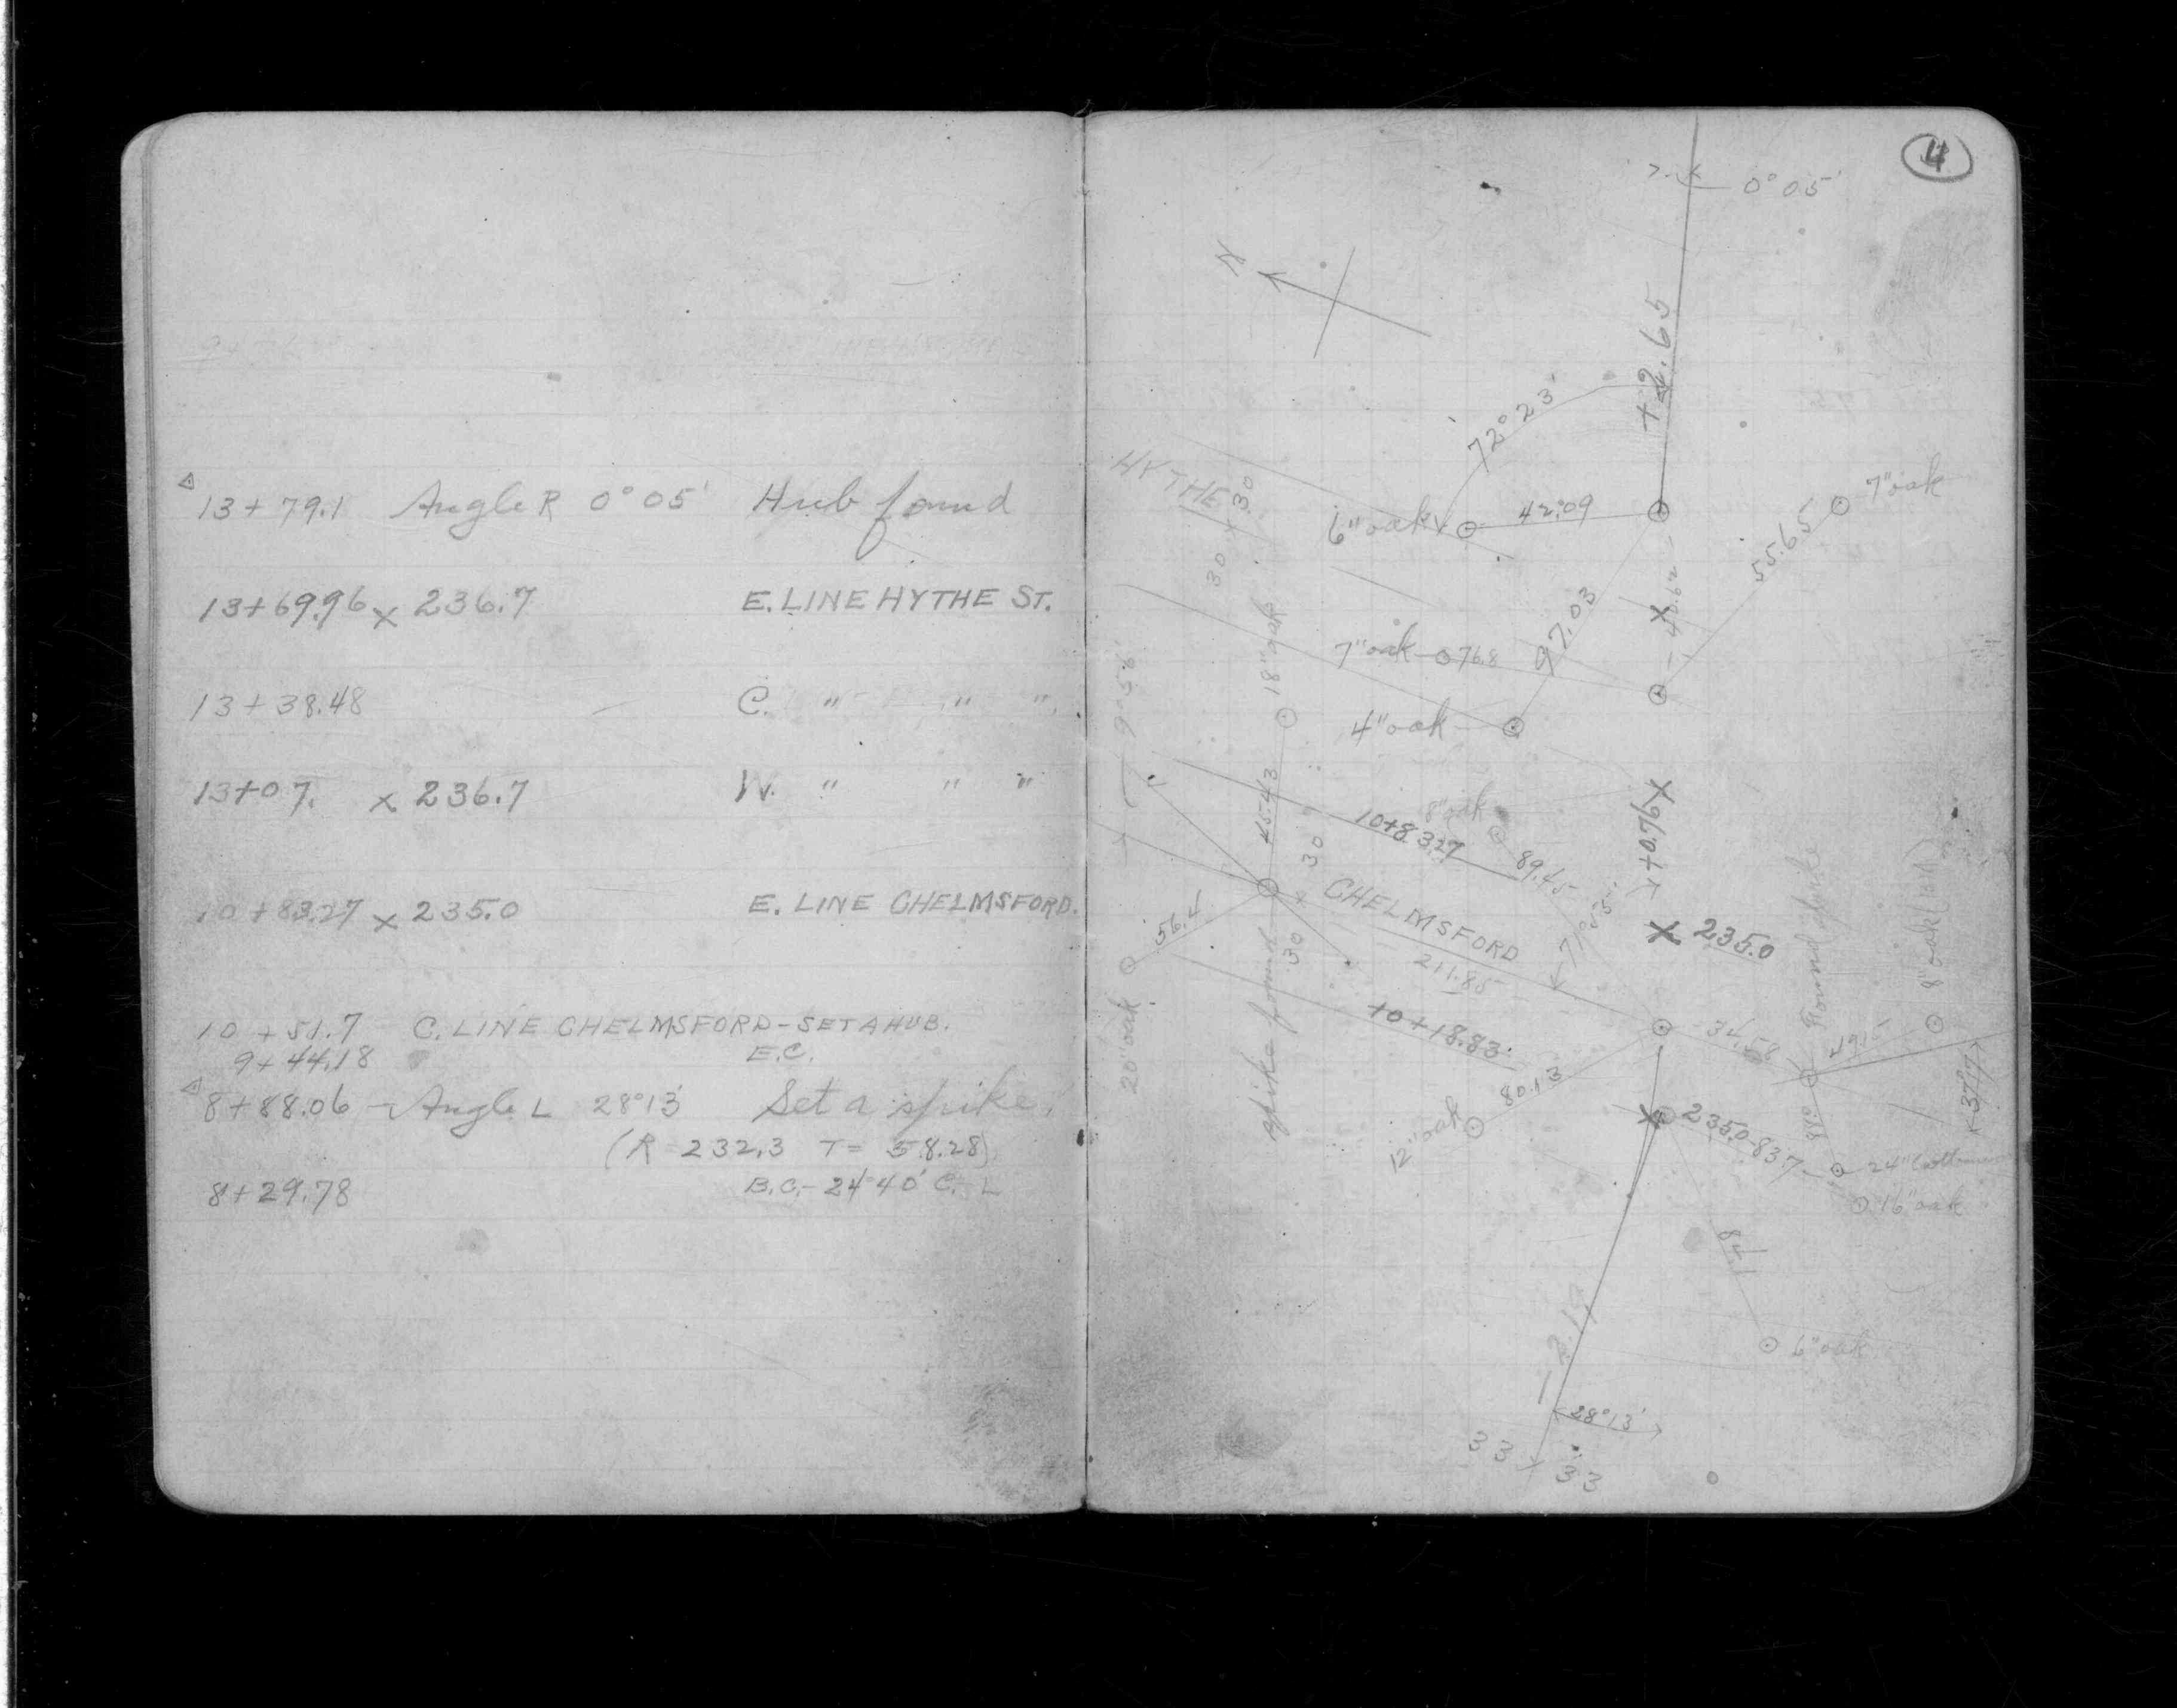 13+79.1 Angle R 0°05' Hub found
13+69.96 x 236.7 E. LINE HYTHE ST.
13+38.48 C. " " "
13+07. x 236.7 W. " " "
10+83.27 x 235.0 E. LINE CHELMSFORD.
10+51.7 C. LINE CHELMSFORD-SET A HUB.
9+44.18 E.C.
8+88.06 - Angle L 28°13' Set a spike.
(R 232.3 T= 58.28)
8+29.78 B.C.- 24°40' C. L
4
0°05'
N
+2.65
72°23'
HYTHE
30
30
6" oak
42.09
7" oak
55.65
97.03
18" oak
7" oak
76.8
4" oak
45.43
8" oak
10+83.27
89.45
+0.76
30
30
CHELMSFORD
211.85
x 235.0
Found spike
8" oak
56.4
20" oak
spike found
10+18.83
34.58
80.13
12" oak
235.0
83.7
16" oak
6" oak
-2.19
28°13'
33
33